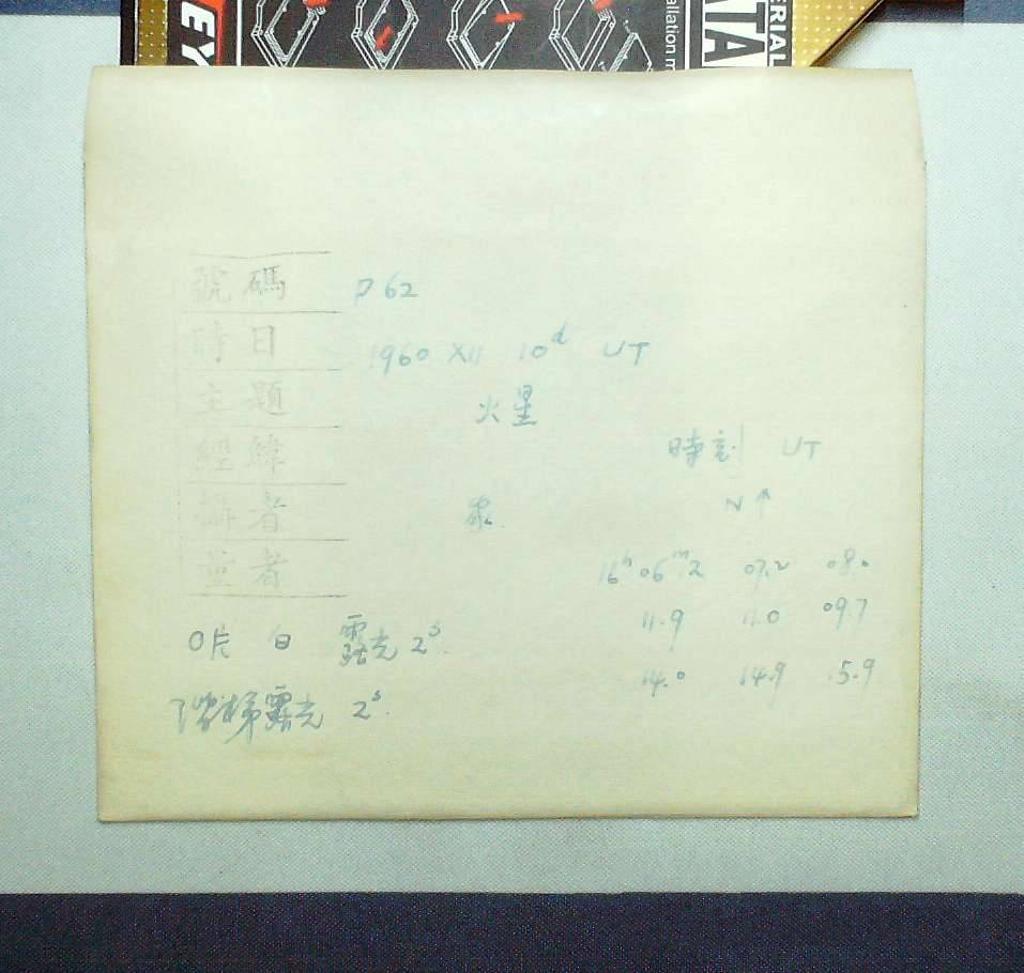 EY
allation m
ATA
ERIAL
號碼 P 62
時日 1960 XII 10ᵈ UT
主題 火星
時刻 UT
經緯
N↑
攝者
著者
16ʰ 06ᵐ.2 07.2 08.0
11.9 11.0 09.7
片 白 露光 2ˢ.
14.0 14.9 15.9
階梯露光 2ˢ.